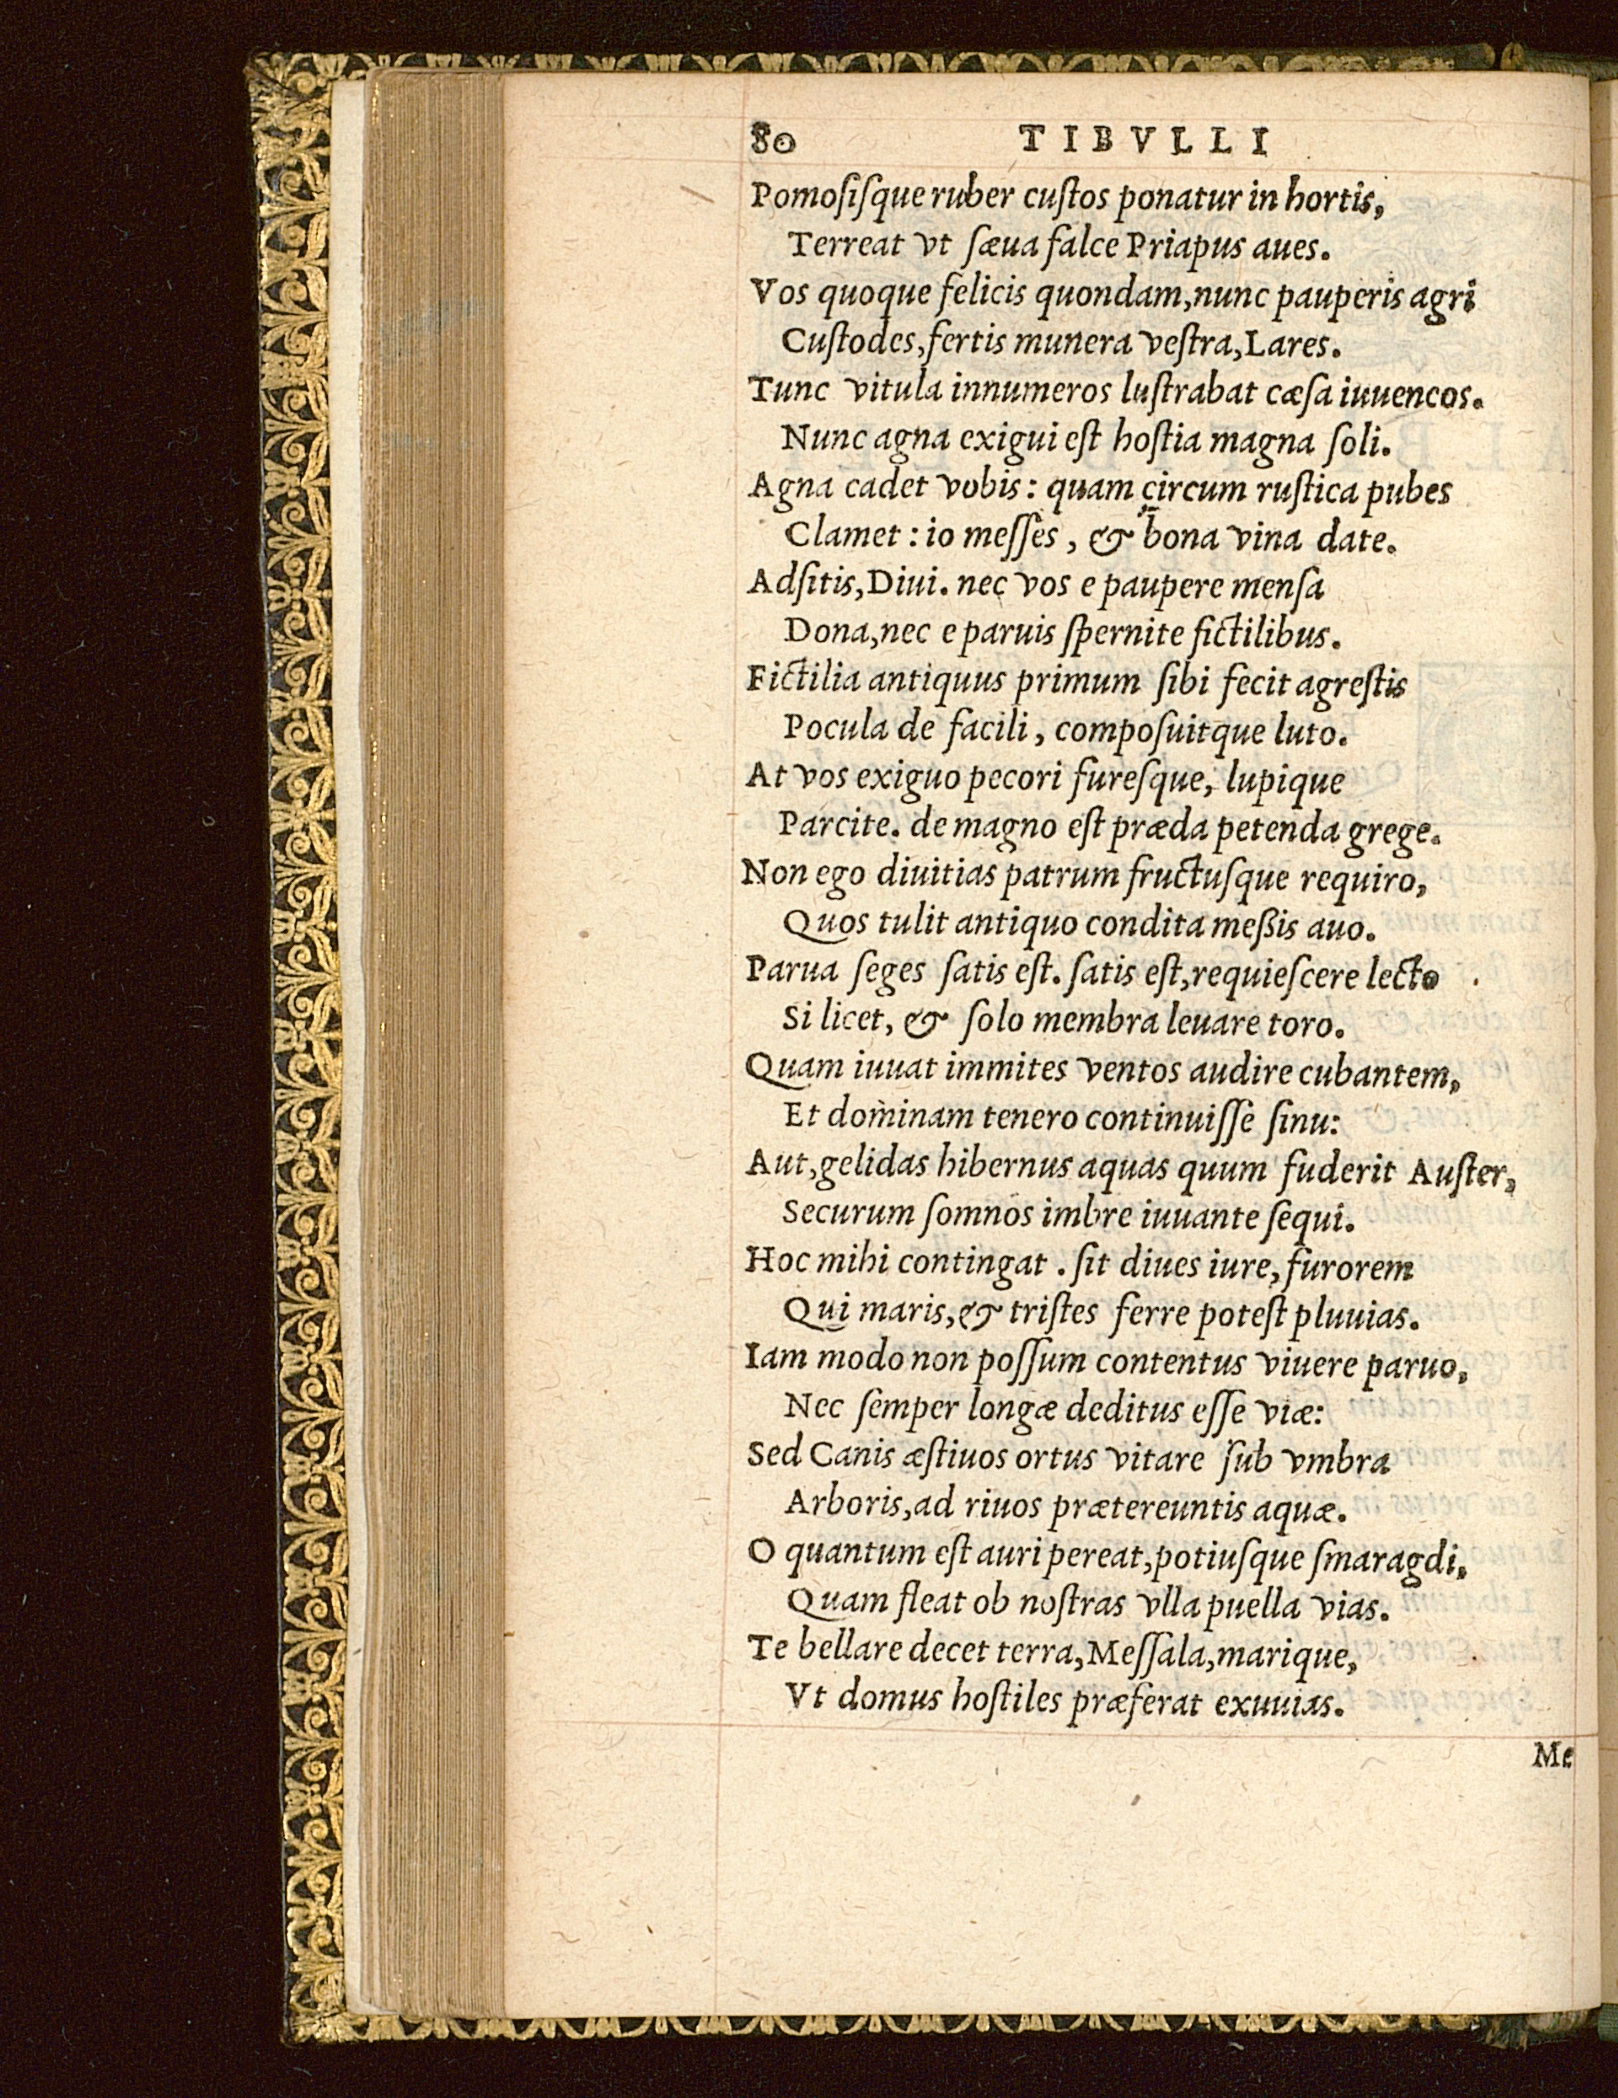 80 TIBVLLI
Pomosiſque ruber cuſtos ponatur in hortis,
Terreat vt ſæua falce Priapus aues.
Vos quoque felicis quondam, nunc pauperis agri
Cuſtodes, fertis munera veſtra, Lares.
Tunc vitula innumeros luſtrabat cæſa iuuencos.
Nunc agna exigui eſt hoſtia magna ſoli.
Agna cadet vobis: quam circum ruſtica pubes
Clamet: io meſſes, & bona vina date.
Adſitis, Diui. nec vos e paupere menſa
Dona, nec e paruis ſpernite fictilibus.
Fictilia antiquus primum ſibi fecit agreſtis
Pocula de facili, compoſuitque luto.
At vos exiguo pecori fureſque, lupique
Parcite. de magno eſt præda petenda grege.
Non ego diuitias patrum fructuſque requiro,
Quos tulit antiquo condita meßis auo.
Parua ſeges ſatis eſt. ſatis eſt, requieſcere lecto
Si licet, & ſolo membra leuare toro.
Quam iuuat immites ventos audire cubantem,
Et dominam tenero continuiſſe ſinu:
Aut, gelidas hibernus aquas quum fuderit Auſter,
Securum ſomnos imbre iuuante ſequi.
Hoc mihi contingat. ſit diues iure, furorem
Qui maris, & triſtes ferre poteſt pluuias.
Iam modo non poſſum contentus viuere paruo,
Nec ſemper longæ deditus eſſe viæ:
Sed Canis æſtiuos ortus vitare ſub vmbra
Arboris, ad riuos prætereuntis aquæ.
O quantum eſt auri pereat, potiuſque ſmaragdi,
Quam fleat ob noſtras vlla puella vias.
Te bellare decet terra, Meſſala, marique,
Vt domus hoſtiles præferat exuuias.
Me